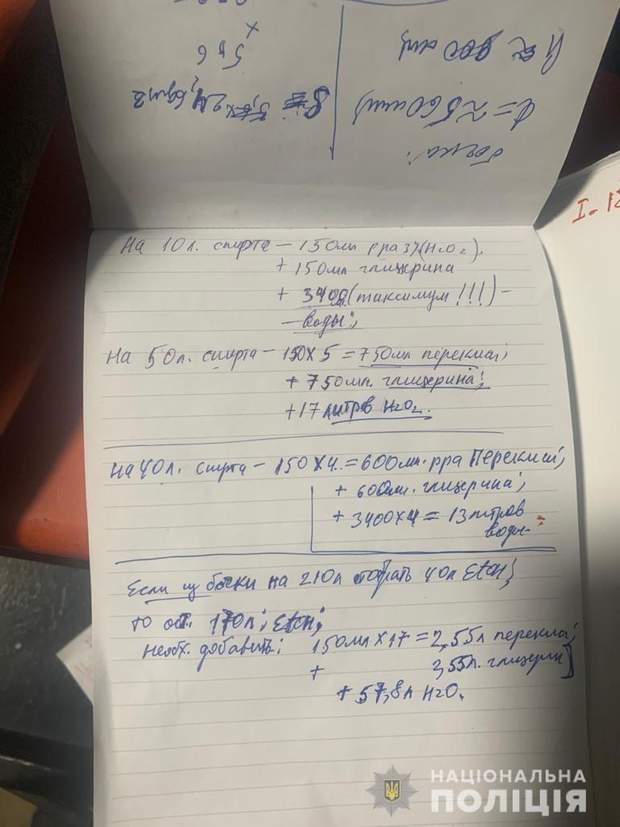 Бочка:
d = ≈ 560 мм
546
x
I-1
На 10л. спирта – 150мл рра 3%(H2O2).
+ 150мл глицерина
+ 3400 (максимум !!!) –
– воды;
На 50л. спирта – 150х5 = 750мл перекиси;
+ 750мл. глицерина;
+ 17 литров H2O.
На 40л. спирта – 150х4 = 600мл. рра Перекиси;
+ 600мл. глицерина;
+ 3400х4 = 13 литров
воды
Если из бочки на 210л отобрать 40л EtOH;
то ост. 170л; EtOH;
Необх. добавить: 150мл х 17 = 2,55л перекиси;
+ 2,55л. глицерин
+ 57,8л H2O.
НАЦІОНАЛЬНА
ПОЛІЦІЯ